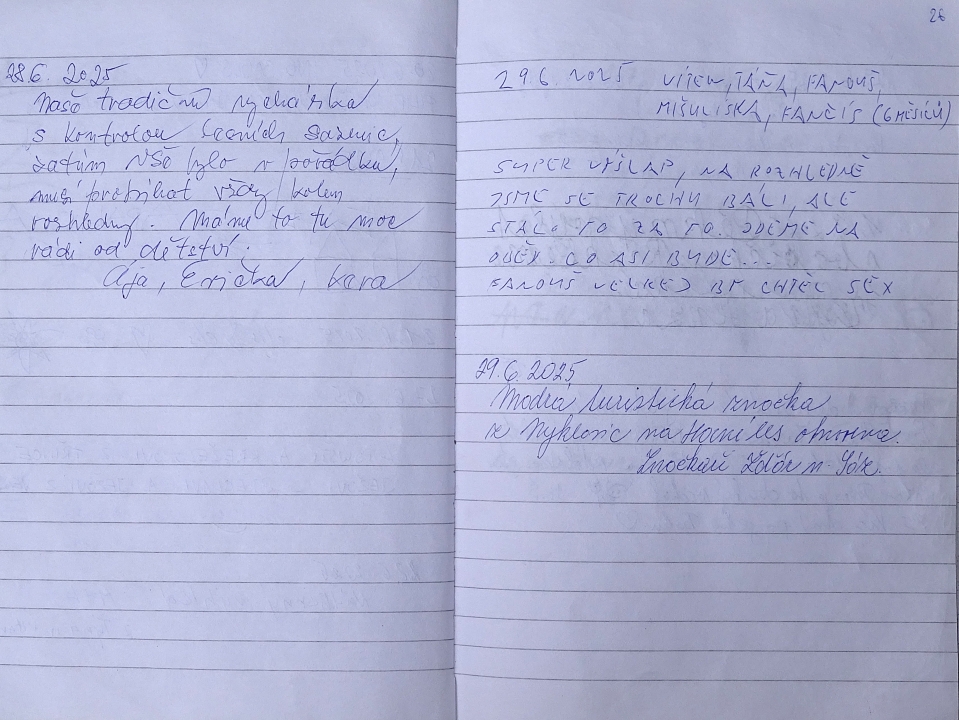 28.6. 2025
Naše tradiční vycházka
s kontrolou lesních sazenic,
zatím vše bylo v pořádku,
musí prosíkat všay kolem
rozhledny. Máme to tu moc
rádi od dětství.
Ája, Evička, Kara
26
29.6. 2025 VÍTEK, TÁŇA, FANOUŠ,
MIŠULISKA, FANČIS (6 MĚSÍCŮ)
SUPER VÝŠLAP, NA ROZHLEDNĚ
JSME SE TROCHU BÁLI, ALE
STÁLO TO ZA TO. JDEME NA
OBĚD. CO ASI BUDE...
FANOUŠ VELKEJ BY CHTĚL SEX
29.6. 2025
Modrá turistická značka
z Vyklesic na Horní les obnovena.
Značkaři Žďár n. Sáz.